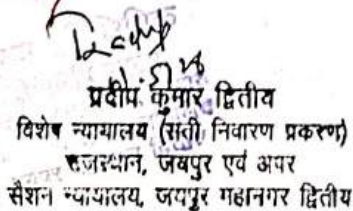 प्रदीप कुमार द्वितीय
विशेष न्यायालय (सती निवारण प्रकरण)
राजस्थान, जयपुर एवं अपर
सैशन न्यायालय, जयपुर महानगर द्वितीय